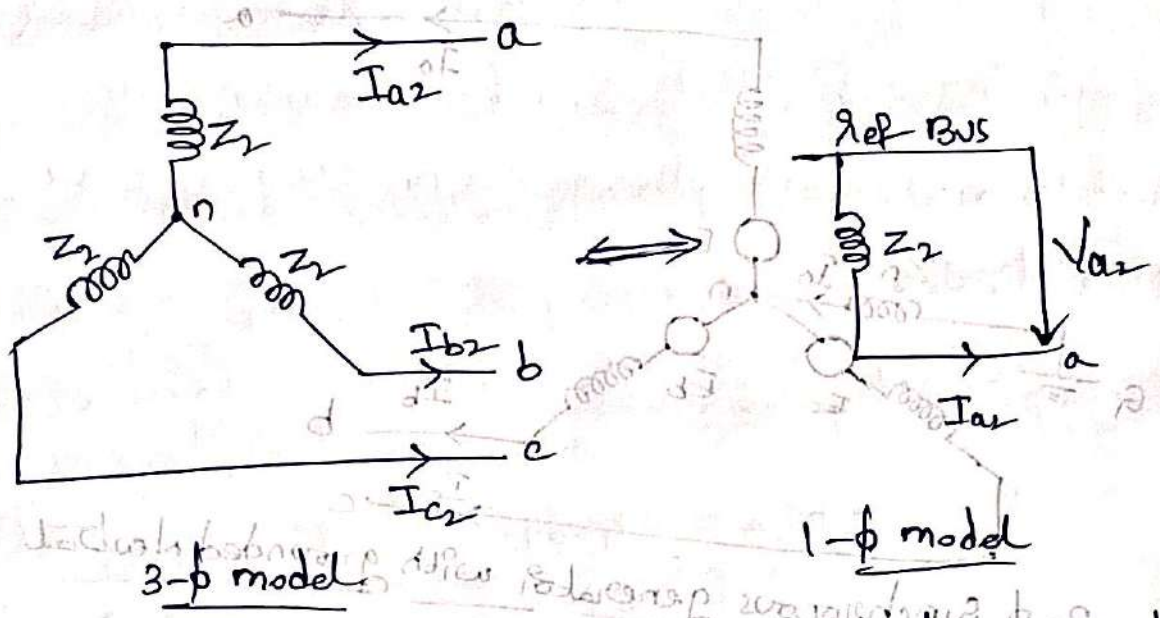 a
I_a2
Z_2
n
Z_2
Z_2
I_b2
b
c
I_c2
3-ϕ model
Ref Bus
Z_2
V_a2
a
I_a2
1-ϕ model